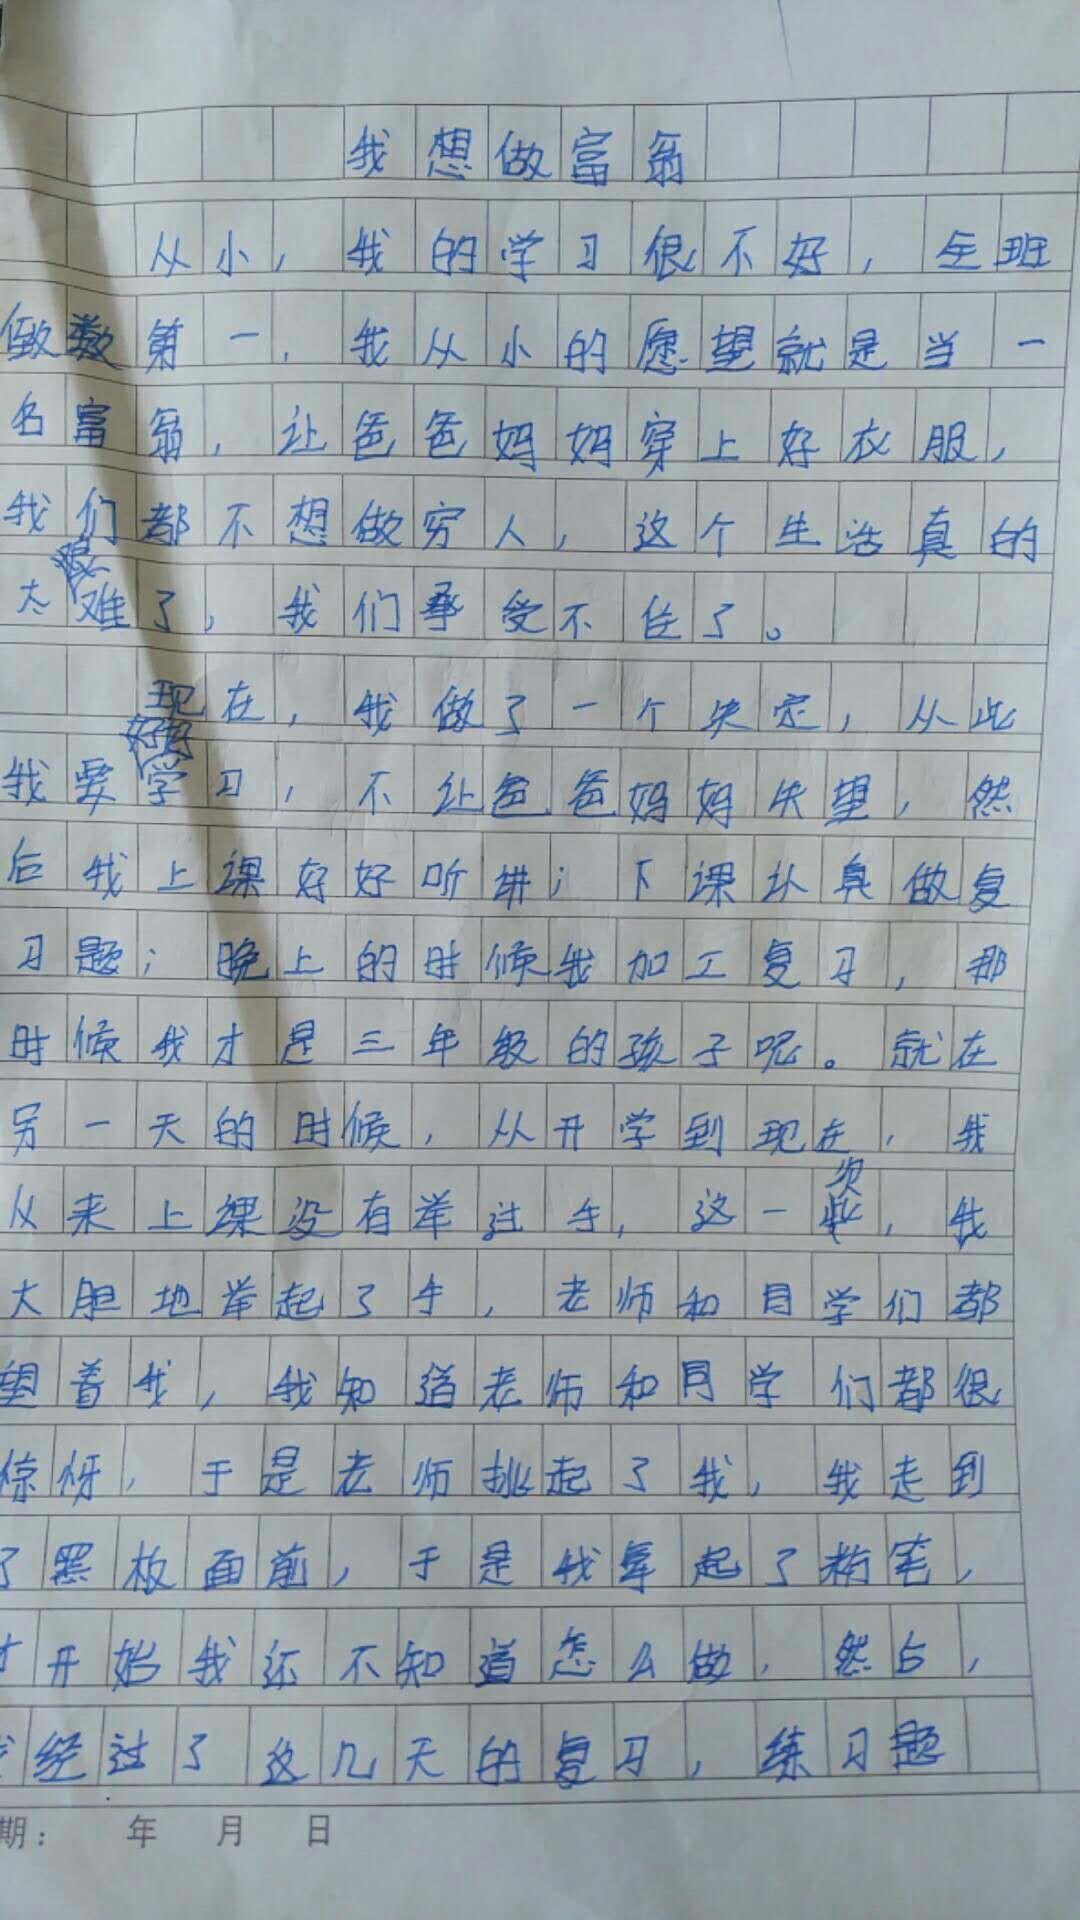 我想做富翁
从小，我的学习很不好，全班
倒数第一，我从小的愿望就是当一
名富翁，让爸爸妈妈穿上好衣服，
我们都不想做穷人，这个生活真的
太难了，我们承受不住了。
现在，我做了一个决定，从此
我要好好学习，不让爸爸妈妈失望，然
后我上课好好听讲；下课认真做复
习题；晚上的时候我加工复习，那
时候我才是三年级的孩子呢。就在
另一天的时候，从开学到现在，我
从来上课没有举过手，这一次，我
大胆地举起了手，老师和同学们都
望着我，我知道老师和同学们都很
惊讶，于是老师挑起了我，我走到
了黑板面前，于是我拿起了粉笔，
才开始我还不知道怎么做，然后，
我经过了这几天的复习，练习题
期：　年　月　日